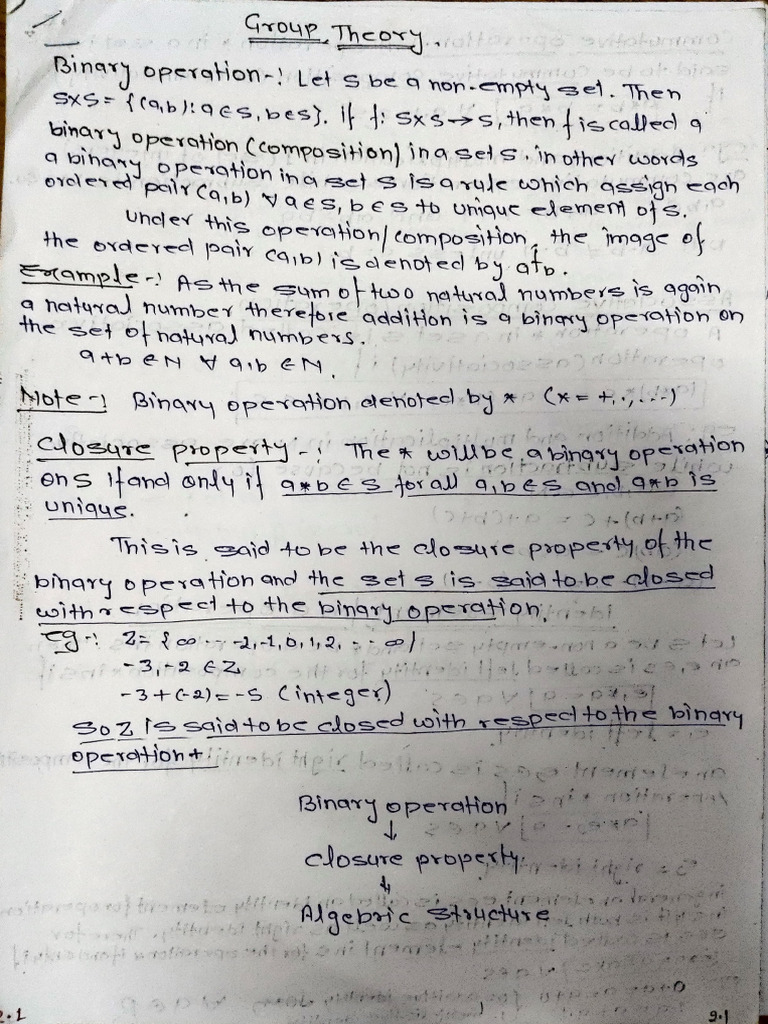 Group Theory.
Binary operation-: Let S be a non-empty set. Then
S×S = {(a,b): a∈S, b∈S}. if f: S×S→S, then f is called a
binary operation (composition) in a set S. in other words
a binary operation in a set S is a rule which assign each
ordered pair (a,b) ∀ a∈S, b∈S to unique element of S.
under this operation/composition, the image of
the ordered pair (a,b) is denoted by afb.
Example-: As the sum of two natural numbers is again
a natural number therefore addition is a binary operation on
the set of natural numbers.
a+b ∈ N ∀ a,b ∈ N.
Note-: Binary operation denoted by * (* = +, ·, ...)
Closure property-: The * will be a binary operation
on S if and only if a*b ∈ S for all a,b∈S and a*b is
unique.
This is said to be the closure property of the
binary operation and the set S is said to be closed
with respect to the binary operation.
Eg-: Z= {∞ --- -2,-1,0,1,2, --- ∞}
-3,-2 ∈ Z
-3+(-2)=-5 (integer)
So Z is said to be closed with respect to the binary
operation +
Binary operation
↓
closure property
↓
Algebric structure
9.1